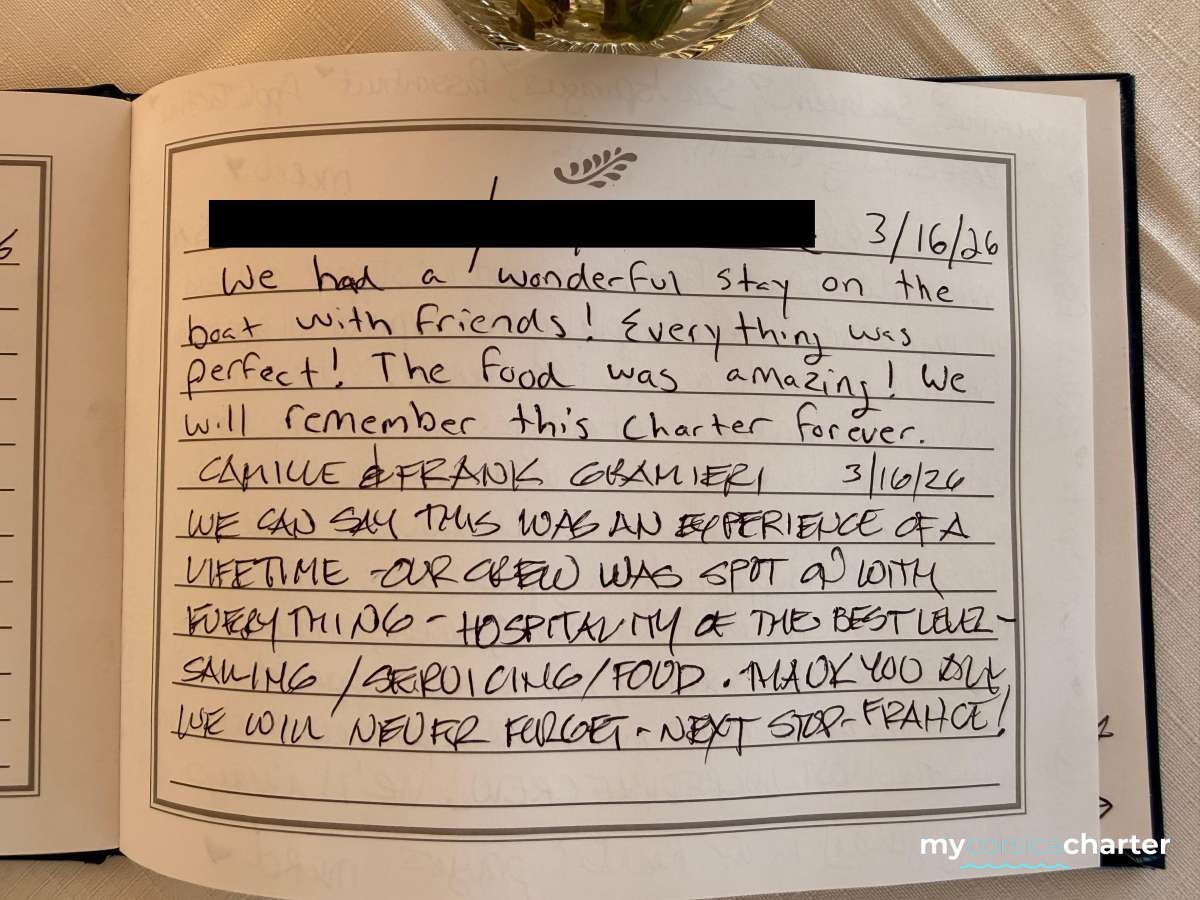 3/16/26
We had a wonderful stay on the
boat with friends! Everything was
perfect! The food was amazing! We
will remember this charter forever.
CAMILLE & FRANK GRAMIERI 3/16/26
WE CAN SAY THIS WAS AN EXPERIENCE OF A
LIFETIME - OUR CREW WAS SPOT ON WITH
EVERYTHING - HOSPITALITY OF THE BEST LEVEL -
SAILING / SERVICING / FOOD. THANK YOU ALL
WE WILL NEVER FORGET - NEXT STOP - FRANCE!
mycorsicacharter